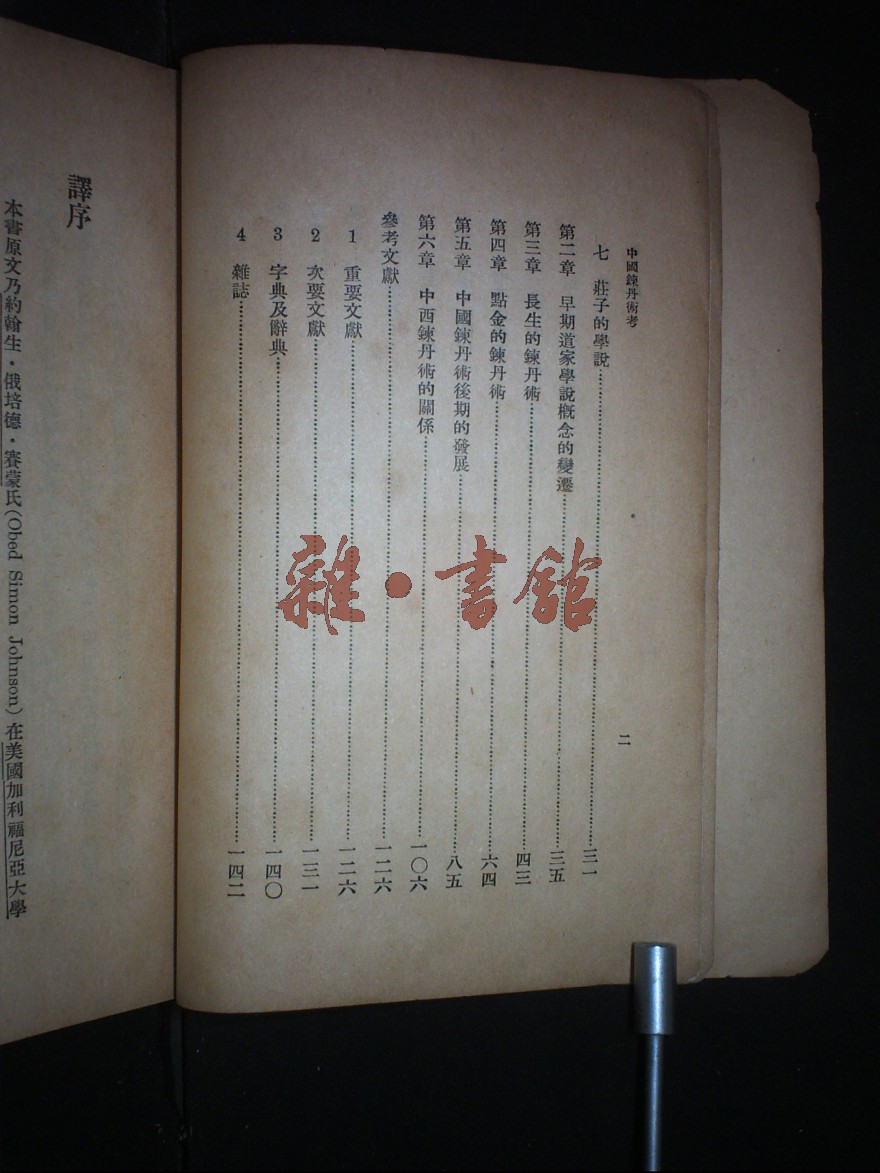 中國鍊丹術考
二
七　莊子的學說……三一
第二章　早期道家學說概念的變遷……三五
第三章　長生的鍊丹術……四三
第四章　點金的鍊丹術……六四
第五章　中國鍊丹術後期的發展……八五
第六章　中西鍊丹術的關係……一〇六
參考文獻……一二六
1　重要文獻……一二六
2　次要文獻……一三一
3　字典及辭典……一四〇
4　雜誌……一四二
譯序
本書原文乃約翰生·俄培德·賽蒙氏(Obed Simon Johnson)在美國加利福尼亞大學
雜·書館